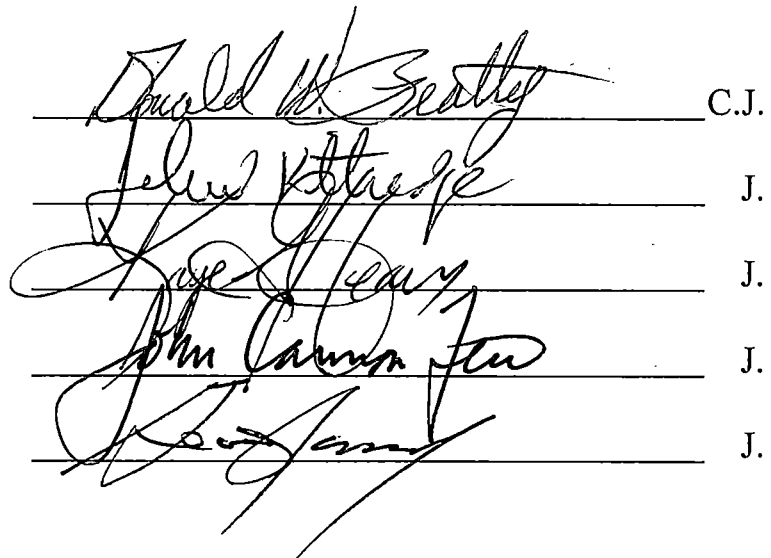 Donald W. Beatty C.J.
John Kittredge J.
Kaye Hearn J.
John Cannon Few J.
J.